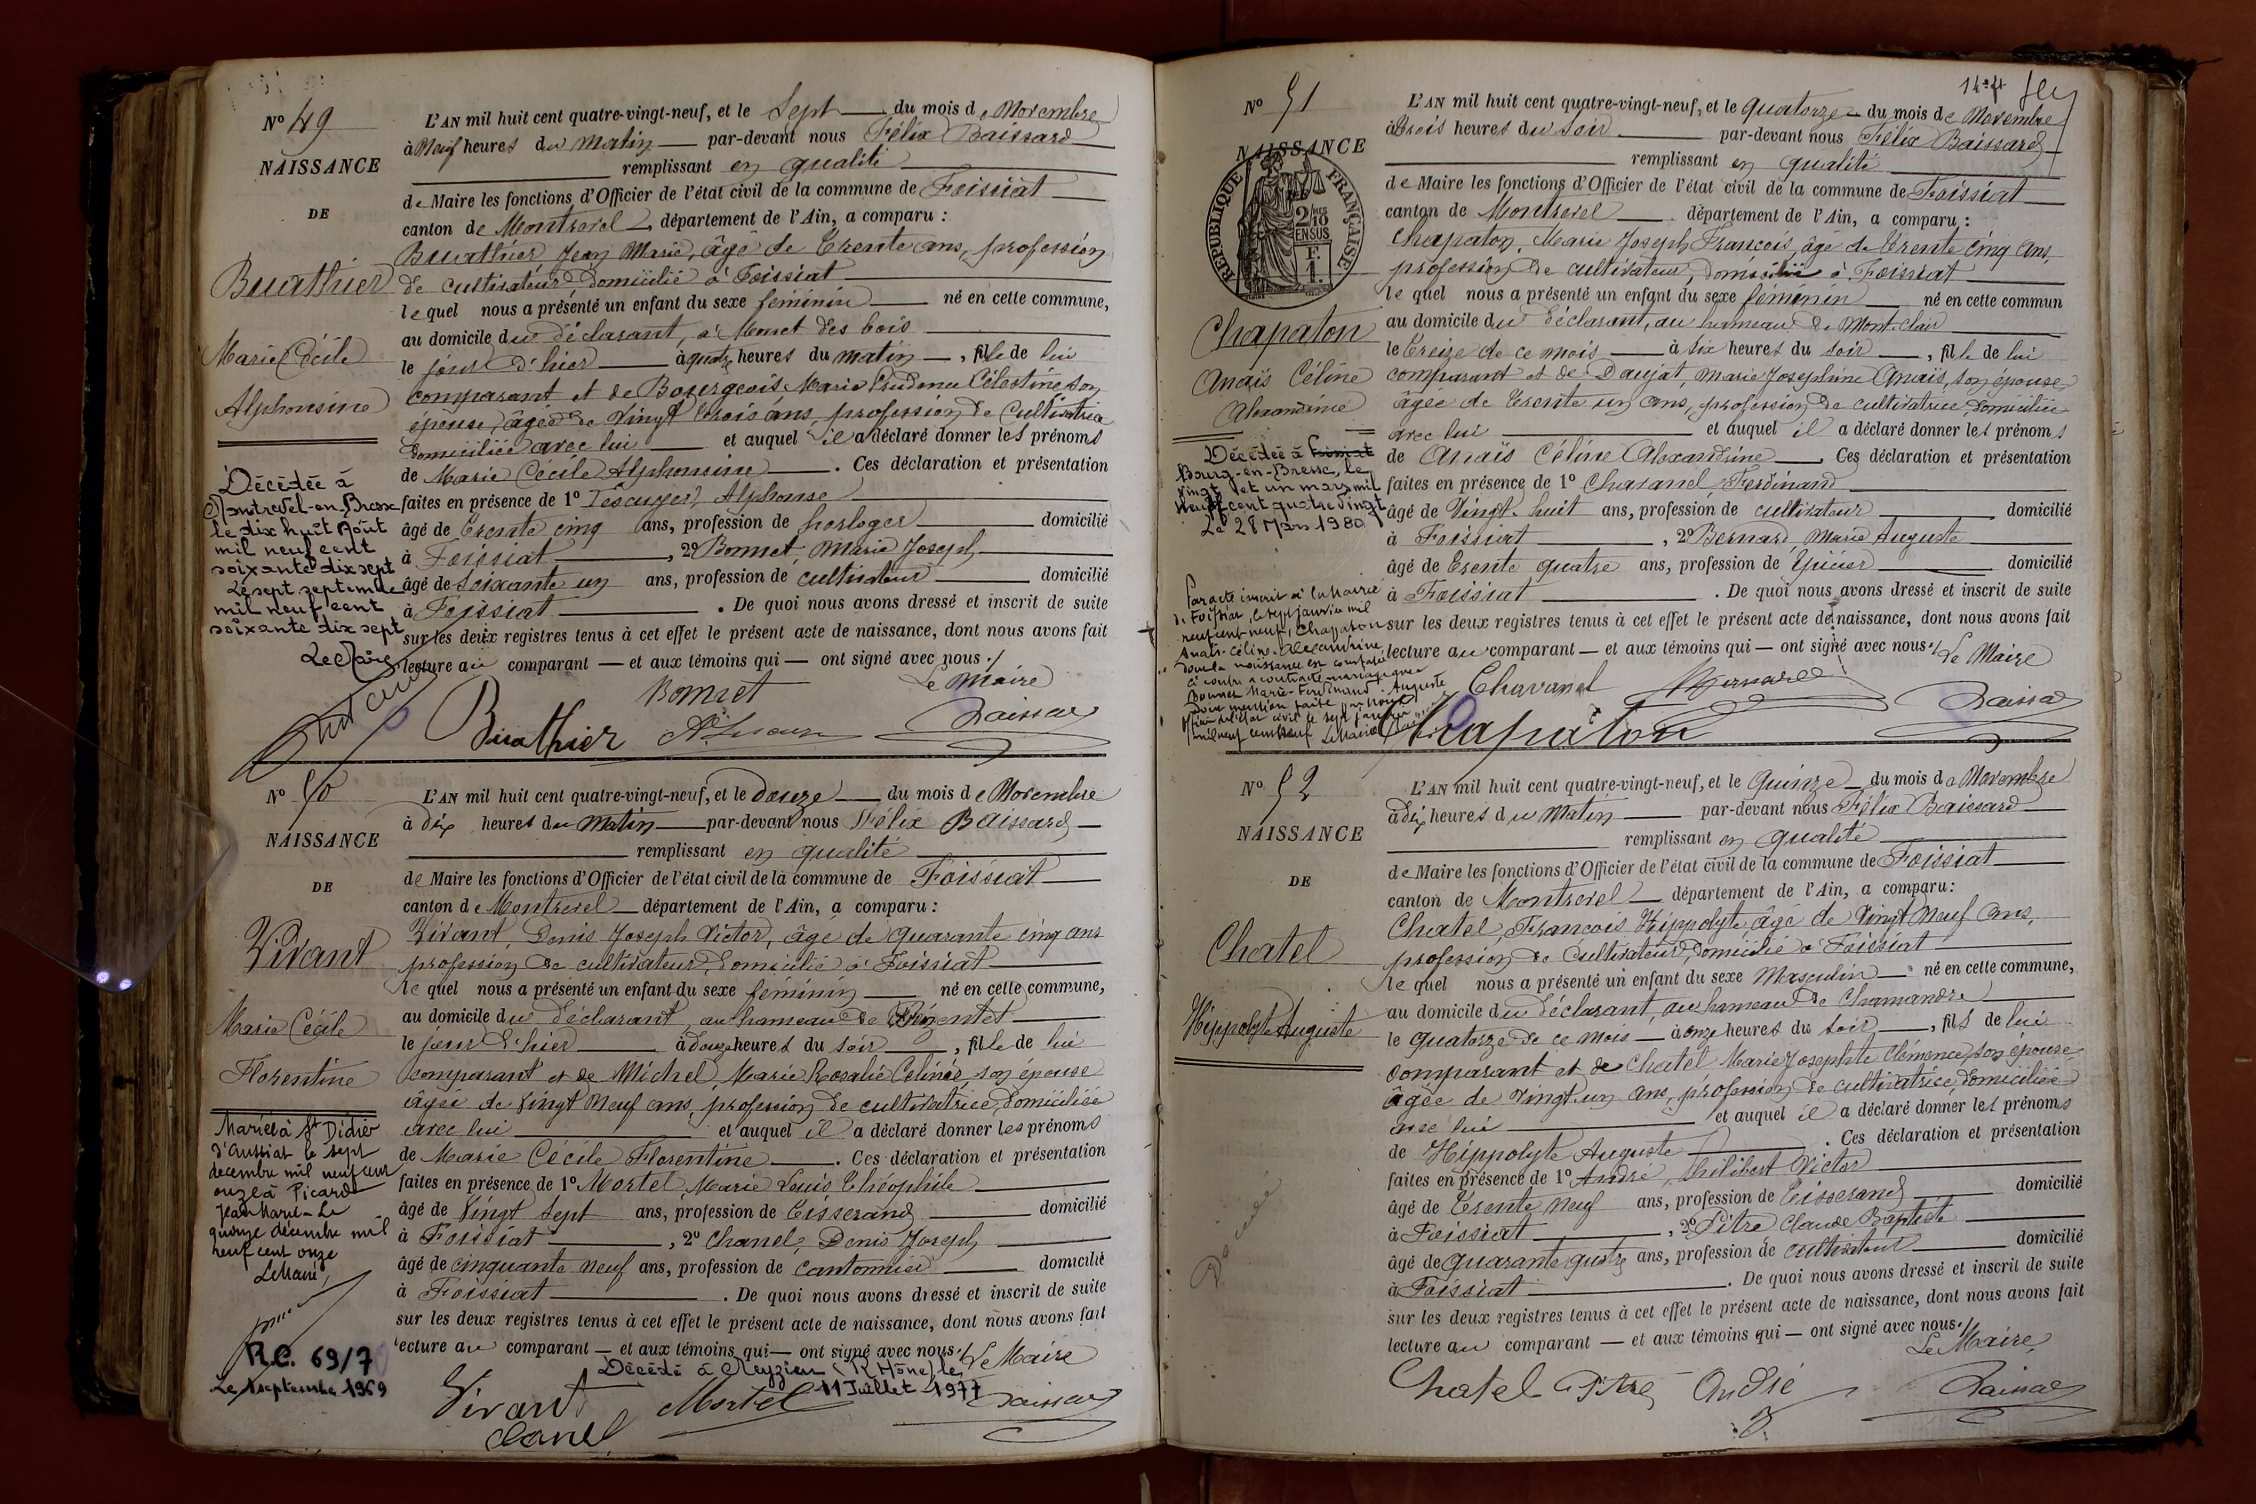 N° 49
NAISSANCE
DE
Buathier
Marie Cécile
Alphonsine
Décédée à
Montrevel-en-Bresse
le dix huit Août
mil neuf cent
soixante dix sept
Le sept septembre
mil neuf cent
soixante dix sept
Le Maire
L'AN mil huit cent quatre-vingt-neuf, et le Sept du mois de Novembre
à Neuf heures du matin par-devant nous Félix Baissard
remplissant en qualité
de Maire les fonctions d'Officier de l'état civil de la commune de Foissiat
canton de Montrevel, département de l'Ain, a comparu :
Buathier Jean Marie, âgé de trente ans, profession
de cultivateur domicilié à Foissiat
lequel nous a présenté un enfant du sexe féminin né en cette commune,
au domicile du déclarant, à Monet des bois
le jour d'hier à quatre heures du matin, fille de lui
comparant et de Bourgeois Marie Prudence Célestine son
épouse, âgée de vingt trois ans, profession de cultivatrice
domiciliée avec lui et auquel il a déclaré donner les prénoms
de Marie Cécile Alphonsine. Ces déclaration et présentation
faites en présence de 1° Lescuyer, Alphonse
âgé de trente cinq ans, profession de horloger domicilié
à Foissiat, 2° Bonnet Marie Joseph
âgé de soixante un ans, profession de cultivateur domicilié
à Foissiat. De quoi nous avons dressé et inscrit de suite
sur les deux registres tenus à cet effet le présent acte de naissance, dont nous avons fait
lecture au comparant — et aux témoins qui — ont signé avec nous.
Le Maire
Bonnet
Buathier A. Lescuyer Baissard
N° 50
NAISSANCE
DE
Vivant
Marie Cécile
Florentine
Mariée à St Didier
d'Aussiat le sept
décembre mil neuf cent
onze à Picard
Jean Marie. Le
quinze décembre mil
neuf cent onze
Le Maire,
R.C. 69/70
Le 1 septembre 1969
L'AN mil huit cent quatre-vingt-neuf, et le douze du mois de Novembre
à dix heures du matin par-devant nous Félix Baissard
remplissant en qualité
de Maire les fonctions d'Officier de l'état civil de la commune de Foissiat
canton de Montrevel département de l'Ain, a comparu :
Vivant, Denis Joseph Victor, âgé de quarante cinq ans
profession de cultivateur, domicilié à Foissiat
lequel nous a présenté un enfant du sexe féminin né en cette commune,
au domicile du déclarant, au hameau de
le jour d'hier à douze heures du soir, fille de lui
comparant et de Michel, Marie Rosalie Celinie, son épouse
âgée de vingt neuf ans, profession de cultivatrice, domiciliée
avec lui et auquel il a déclaré donner les prénoms
de Marie Cécile Florentine. Ces déclaration et présentation
faites en présence de 1° Mortel, Marie Louis Théophile
âgé de vingt sept ans, profession de tisserand domicilié
à Foissiat, 2° Chanel, Denis Joseph
âgé de cinquante neuf ans, profession de cantonnier domicilié
à Foissiat. De quoi nous avons dressé et inscrit de suite
sur les deux registres tenus à cet effet le présent acte de naissance, dont nous avons fait
lecture au comparant — et aux témoins qui — ont signé avec nous.
Le Maire
Décédé à Meyzieu (Rhône) le
11 Juillet 1977
Vivant Mortel Baissard
Chanel
N° 51
NAISSANCE
RÉPUBLIQUE FRANÇAISE
2/10 EN SUS
F. 1.
Chapaton
Anaïs Céline
Alexandrine
Décédée à Foissiat
Bourg-en-Bresse, le
vingt et un mars mil
neuf cent quatre vingt
Le 28 Mars 1980
Par acte inscrit à la Mairie
de Foissiat, le sept janvier mil
neuf cent neuf, Chapaton
Anaïs-Céline-Alexandrine,
dont la naissance est constatée
ci contre a contracté mariage avec
Bonnet Marie-Ferdinand-Auguste
Dont mention faite par nous
officier de l'état civil le sept janvier
mil neuf cent neuf Le Maire
L'AN mil huit cent quatre-vingt-neuf, et le quatorze du mois de Novembre
à trois heures du soir par-devant nous Félix Baissard
remplissant en qualité
de Maire les fonctions d'Officier de l'état civil de la commune de Foissiat
canton de Montrevel département de l'Ain, a comparu :
Chapaton, Marie Joseph François, âgé de trente cinq ans,
profession de cultivateur, domicilié à Foissiat
lequel nous a présenté un enfant du sexe féminin né en cette commun
au domicile du déclarant, au hameau de Mont-clair
le treize de ce mois à six heures du soir, fille de lui
comparant et de Daujat, Marie Joséphine Anaïs, son épouse
âgée de trente un ans, profession de cultivatrice domiciliée
avec lui et auquel il a déclaré donner les prénoms
de Anaïs Céline Alexandrine. Ces déclaration et présentation
faites en présence de 1° Chavanel, Ferdinand
âgé de vingt-huit ans, profession de cultivateur domicilié
à Foissiat, 2° Bernard Marie Auguste
âgé de trente quatre ans, profession de épicier domicilié
à Foissiat. De quoi nous avons dressé et inscrit de suite
sur les deux registres tenus à cet effet le présent acte de naissance, dont nous avons fait
lecture au comparant — et aux témoins qui — ont signé avec nous.
Le Maire
Chavanel Bernard
Chapaton Baissard
N° 52
NAISSANCE
DE
Chatel
Hippolyte Auguste
L'AN mil huit cent quatre-vingt-neuf, et le quinze du mois de Novembre
à dix heures du matin par-devant nous Félix Baissard
remplissant en qualité
de Maire les fonctions d'Officier de l'état civil de la commune de Foissiat
canton de Montrevel département de l'Ain, a comparu :
Chatel, François Hippolyte âgé de vingt neuf ans,
profession de cultivateur, domicilié à Foissiat
lequel nous a présenté un enfant du sexe Masculin né en cette commune,
au domicile du déclarant, au hameau de Chamandre
le quatorze de ce mois à onze heures du soir, fils de lui
comparant et de Chatel Marie Josephte Clémence, son épouse
âgée de vingt-un ans, profession de cultivatrice, domiciliée
avec lui et auquel il a déclaré donner les prénoms
de Hippolyte Auguste. Ces déclaration et présentation
faites en présence de 1° André, Philibert Victor
âgé de trente neuf ans, profession de tisserand domicilié
à Foissiat, 2° Pitre Claude Baptiste
âgé de quarante quatre ans, profession de cultivateur domicilié
à Foissiat. De quoi nous avons dressé et inscrit de suite
sur les deux registres tenus à cet effet le présent acte de naissance, dont nous avons fait
lecture au comparant — et aux témoins qui — ont signé avec nous.
Le Maire,
Chatel Pitre André Baissard